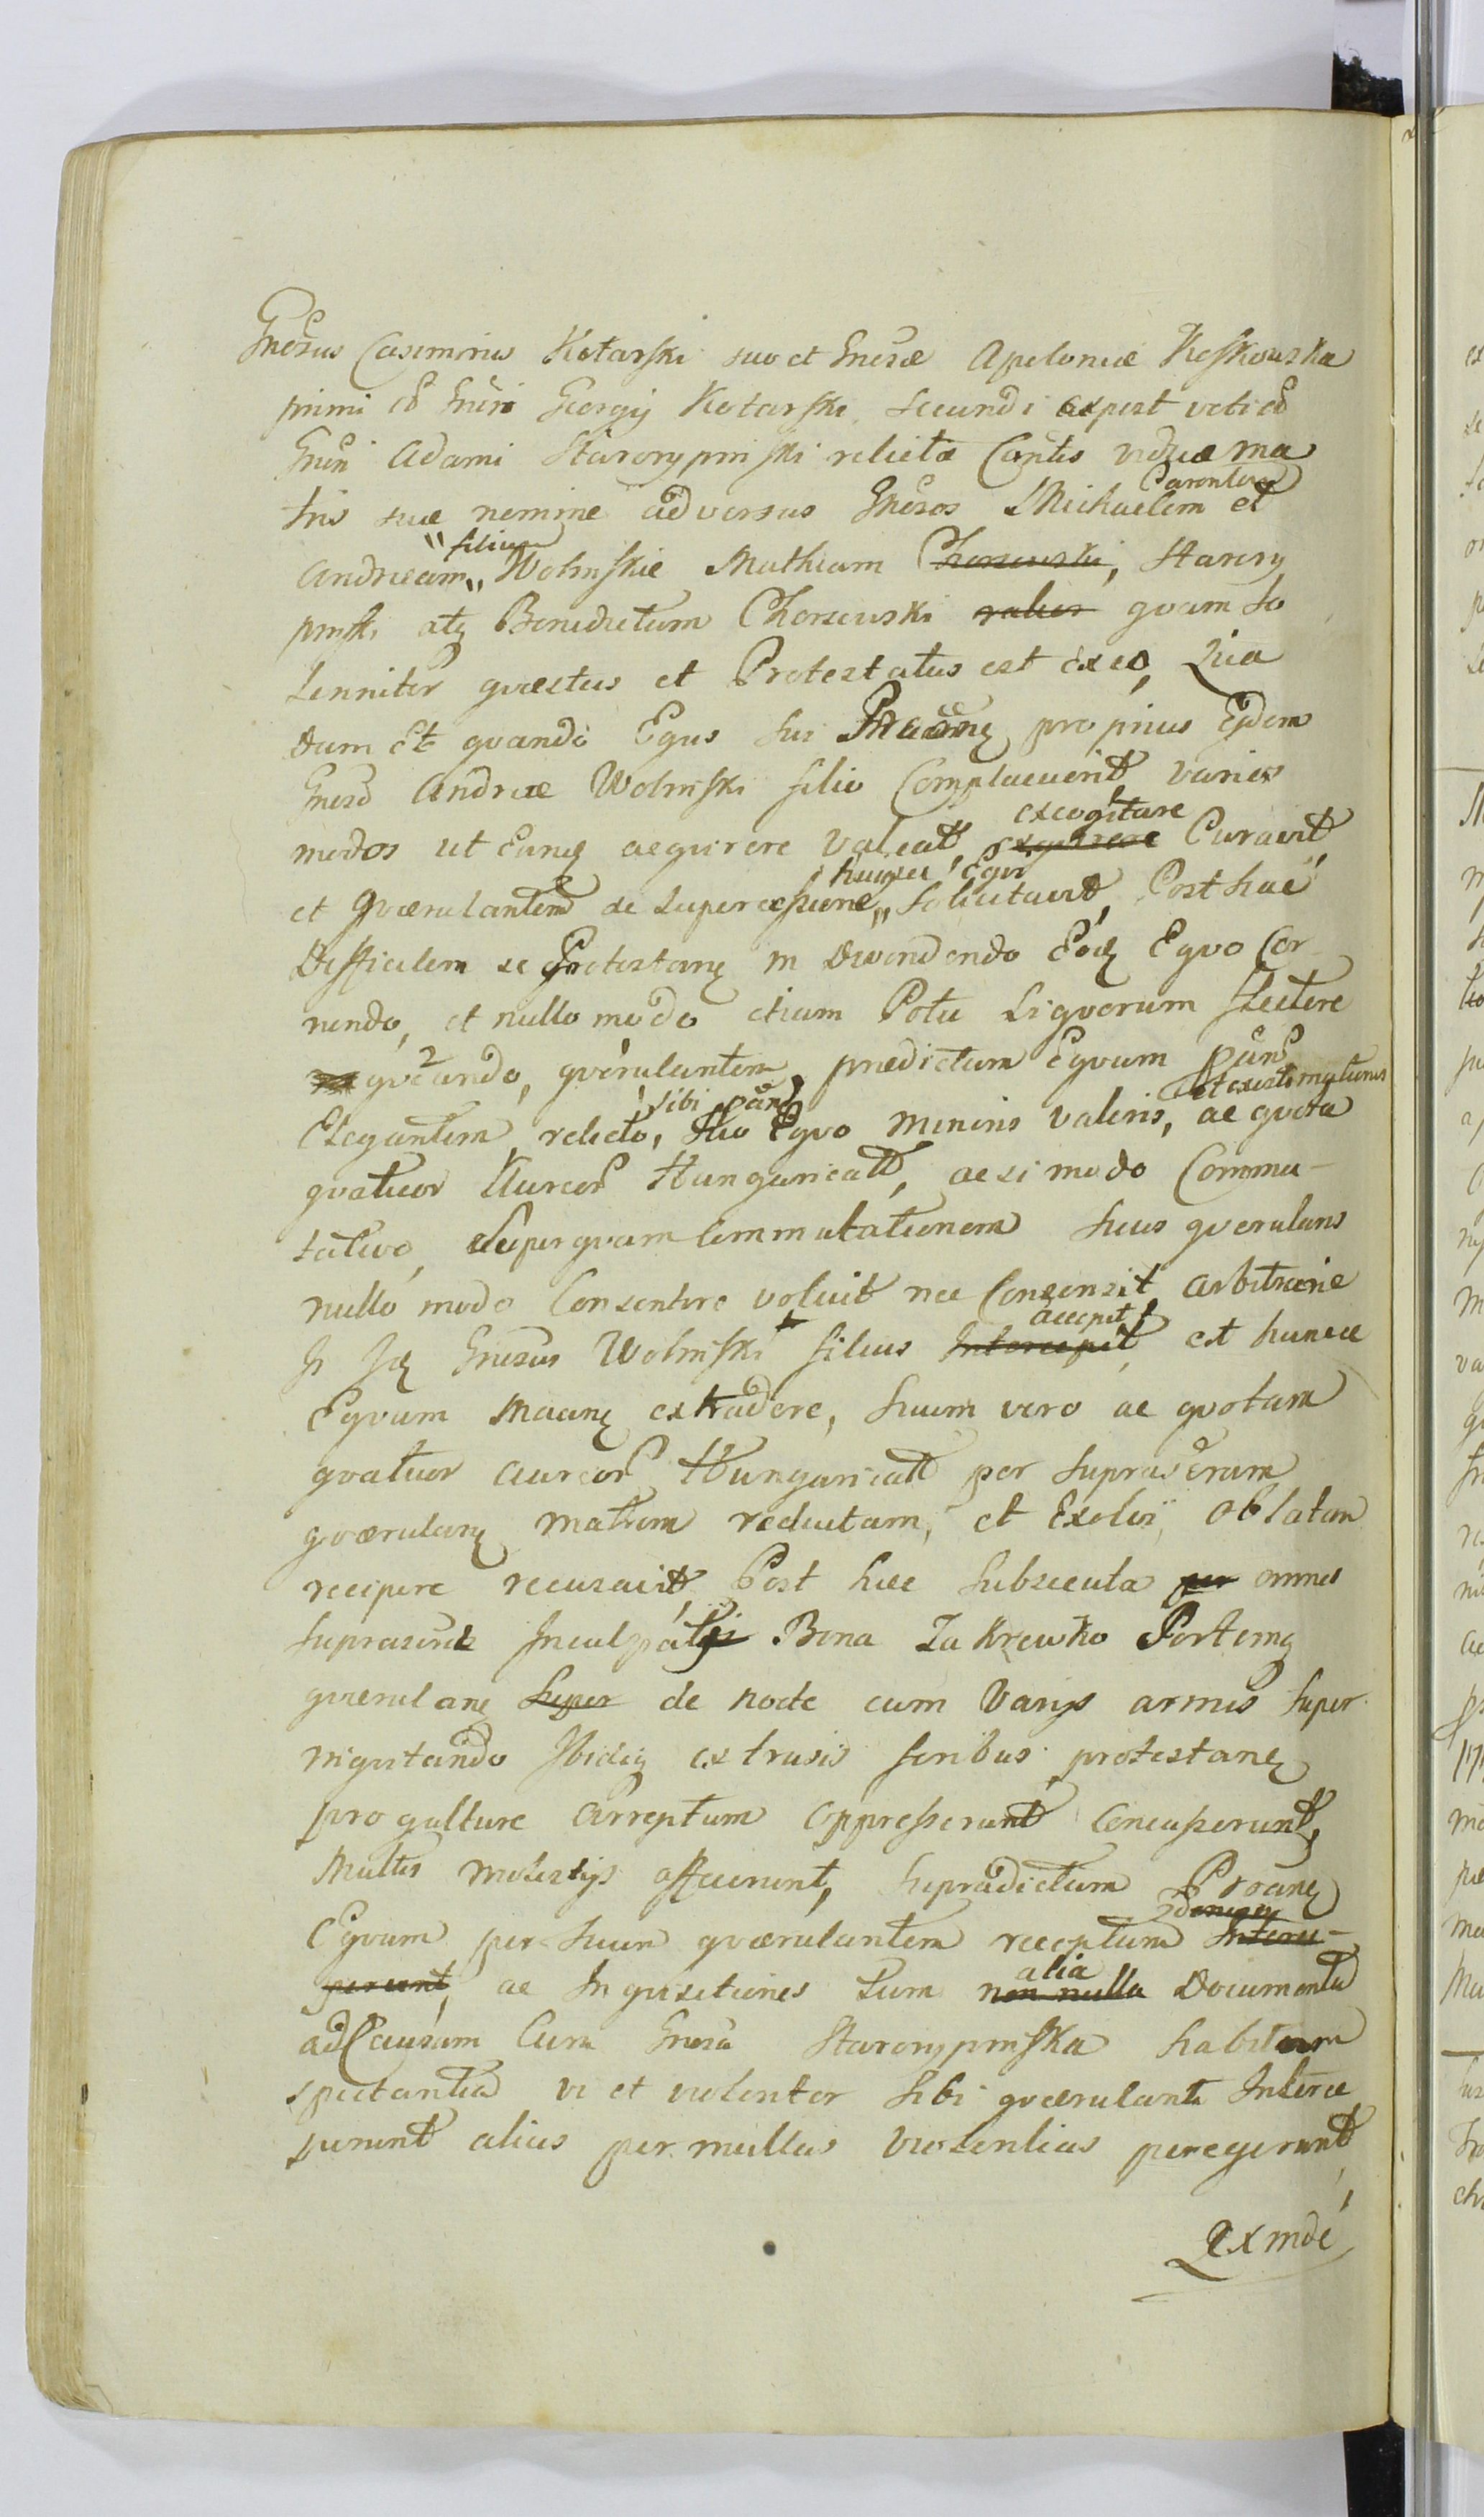 Gnersus Casimirus Kotarski suo et Gnersae Apoloniae Koskowska
primi co Gnersi Georgij Kotarski secundi expost voti co
Gnersi Adami Starorypinski relictae Contis viduae ma
Parentem
tris suae nomine adversus Gnersos Michaelem et
filium
Andream Wolinskie Mathiam Chorzewski, Starory
pinski atq Benedictum Chorzewski raliter quam so
lenniter quaestus et Protestatus est ex eo, Quia
dum et quando Equs sui propius Ejdem
Gnerso Andreae Wolinski filio Complacuerit, varios
excogitare
modos ut Eunq aequirere valeat, Curavit
hujusce Equi
et Quaerulantem de supercessione solicitavit, Post hac
Difficilem se Protestanq in divendendo Eodq Equo Cer
nendo, et nullo modo etiam Potu Liquorum flectere
queando, querulantem, praedictum Equum
et aestimationis
sibi
Elegantem relicto, suo Equo minoris valoris, ac quota
quatuor Aureor Hungaricall, ac si modo Commu-
tativo, superquam commutationem suus querulans
nullo modo Consentire voluit nec Consensit, arbitrarie
accepit
Is Idq Gnersus Wolinski filius Intercepit, et huncce
Equum Maanq extradere, suum vero ac quotam
quatuor aureor Hungaricall per supraseram
quaerulanq matrem reductam, et Exolvi, oblatam
recipere recusavit, Post haec subsecuta per omnes
supraserit Inculpati Bona Zakrewko Portemq
quaerulanq super de nocte cum Varijs armis super
nigritando Ibidq extrusis foribus protestanq
pro gutture arreptum oppresserunt Concusserunt,
Multis molestijs affecerunt, supradictum
denuo
Equum per suum quaerulantem receptum Interce-
alia
perunt, ac Inquisitiones tum non nulla Documenta
ad Causam Cum Gnersa Starorypinska habitam
spectantia vi et violenter sibi quaerulanti Interce
perunt alias per multas violentias peregerunt,
Exinde